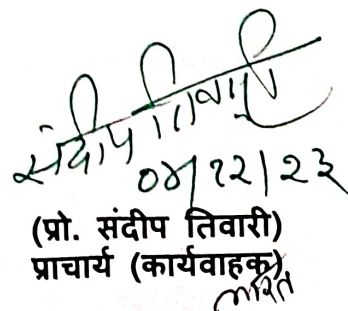 संदीप तिवारी
04/12/23
(प्रो. संदीप तिवारी)
प्राचार्य (कार्यवाहक)